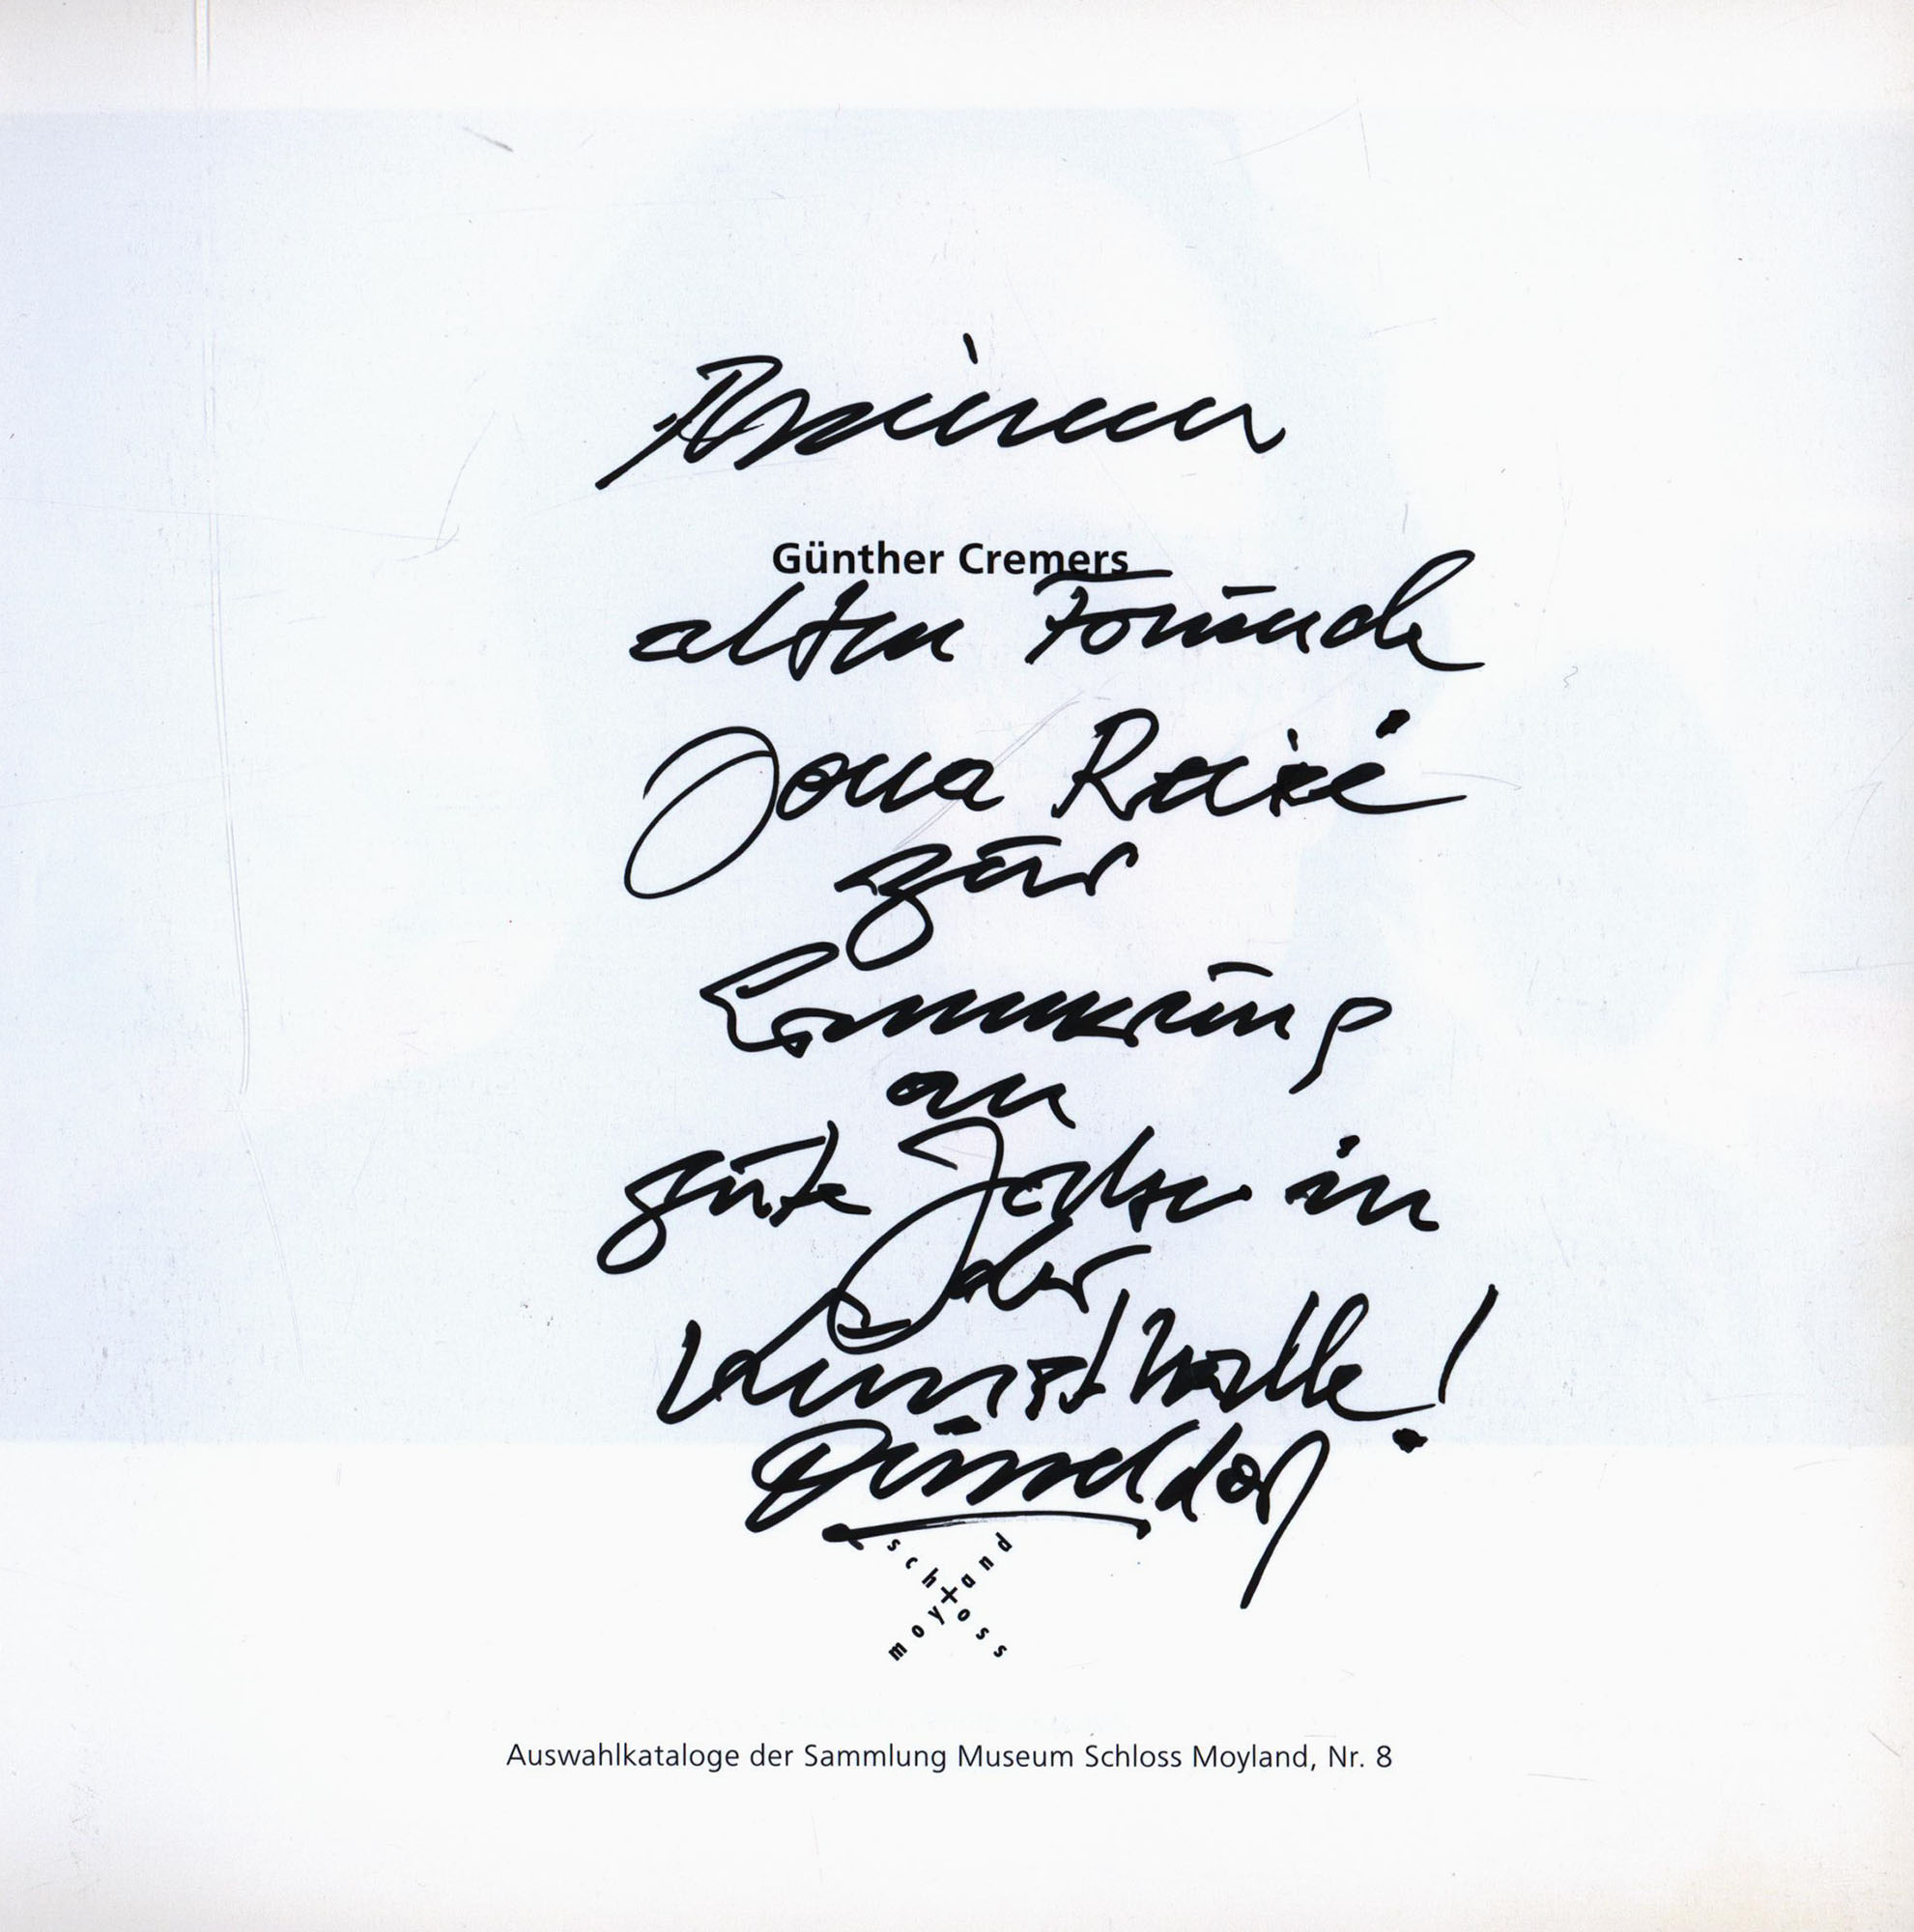 Meinem
Günther Cremers
alten Freunde
zur
Erinnerung
an
gute Jahre in
der
Kunsthalle!
Düsseldorf
schloss
moyland
Auswahlkataloge der Sammlung Museum Schloss Moyland, Nr. 8